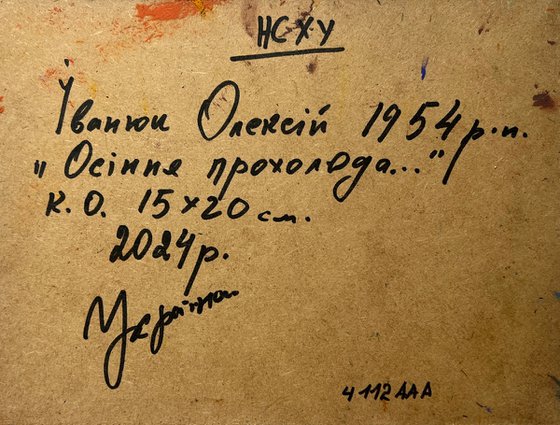 НСХУ
Іванюк Олексій 1954 р.н.
"Осіння прохолода..."
к.о. 15х20 см.
2024 р.
Україна
4112ААА